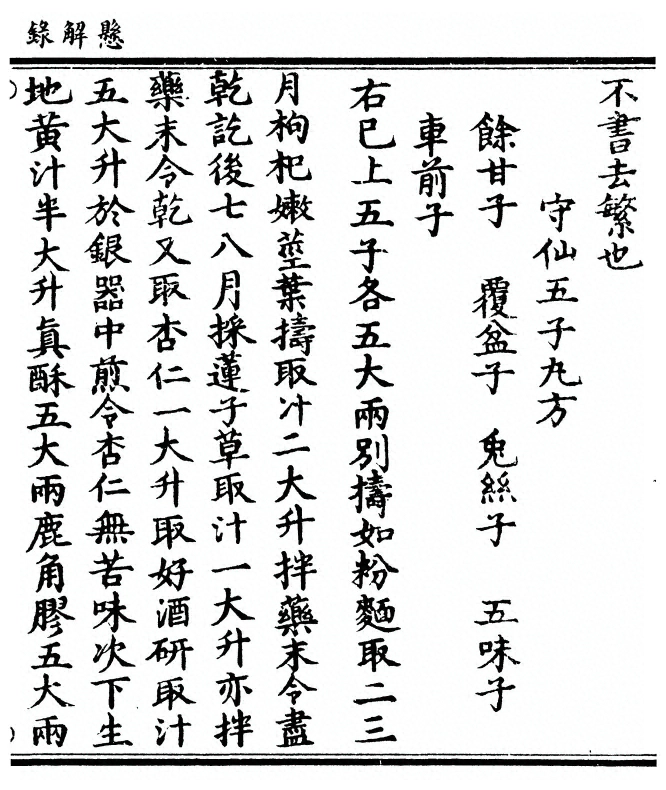 懸解錄
不書去繁也
守仙五子丸方
餘甘子　覆盆子　兎絲子　五味子
車前子
右已上五子各五大兩別擣如粉麵取二三
月枸杞嫩莖葉擣取汁二大升拌藥末令盡
乾訖後七八月採蓮子草取汁一大升亦拌
藥末令乾又取杏仁一大升取好酒研取汁
五大升於銀器中煎令杏仁無苦味次下生
地黃汁半大升眞酥五大兩鹿角膠五大兩